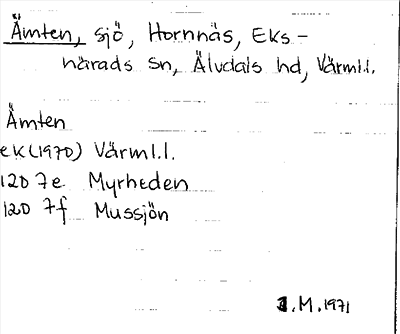 Ämten, sjö, Hornnäs, Eks-
härads sn, Älvdals hd, Värml.l.
Ämten
ek (1970) Värml.l.
12D 7e Myrheden
12D 7f Mussjön
I.M. 1971